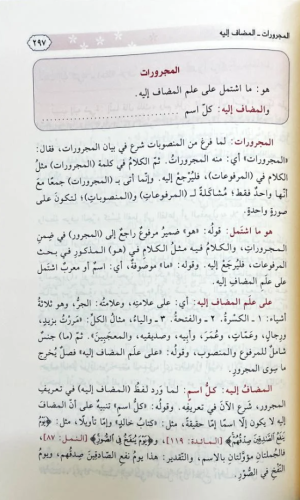 المجرورات ـ المضاف إليه
٢٩٧
المجرورات
هو: ما اشتمل على علم المضاف إليه.
والمضاف إليه: كلّ اسم ........................
المجرورات: لما فرغ من المنصوبات شرع في بيان المجرورات، فقال:
«المجرورات» أي: منه المجروراتُ. ثمّ الكلامُ في كلمة (المجرورات) مثلُ
الكلام في (المرفوعات)، فليُرْجَعْ إليه. وإنّما أتى بـ (المجرورات) جمعًا مَعَ
أنّها واحدٌ فقط؛ مُشاكَلةً لـ (المرفوعات) و(المنصوبات)؛ لتكونَ على
صورةٍ واحدةٍ.
هو ما اشتمل: قولُه: «هو» ضميرٌ مرفوعٌ راجعٌ إلى (المجرور) في ضِمنِ
المجرورات، والكلامُ فيه مثلُ الكلام في (هو) المذكورِ في بحث
المرفوعات، فليُرْجَعْ إليه. وقوله: «ما» موصوفةٌ، أي: اسمٌ أو معربٌ اشتمل
على عَلَمِ المضافِ إليه.
على علم المضاف إليه: أي: على علامتِه، وعلامتُه: الجرُّ، وهو ثلاثةُ
أشياء: ١ ـ الكسْرةُ. ٢ ـ والفتحةُ. ٣ ـ والياءُ، مثالُ الكلّ: «مَررْتُ بزيدٍ،
ورجالٍ، وعَمّاتٍ، وعُمَرَ، وأبيه، وصديقيه، والمعجبِينَ». ثمّ (ما) جنسٌ
شاملٌ للمرفوع والمنصوب، وقولُه: «على عَلَم المضاف إليه» فصلٌ يُخرج
ما سِوى المجرورِ.
المضاف إليه: كلُّ اسم: لما وَرد لفظُ (المضاف إليه) في تعريفِ
المجرور، شَرع الآنَ في تعريفِه. وقولُه: «كلُّ اسم» تنبيهٌ على أنّ المضافَ
إليه لا يكون إلّا اسمًا إمّا حقيقةً، مثل: «كتابُ خالدٍ» وإمّا تأويلًا، مثل: ﴿يَوْمُ
يَنفَعُ الصَّادِقِينَ صِدْقُهُمْ﴾ [المائدة: ١١٩]، و﴿وَيَوْمَ يُنفَخُ فِي الصُّورِ﴾ [النمل: ٨٧]،
فالجُملتانِ مؤوَّلتانِ بالاسم، والتقدير: هذا يومُ نفعِ الصّادقينَ صدقُهم، ويومَ
النّفخِ في الصُّوْرِ.